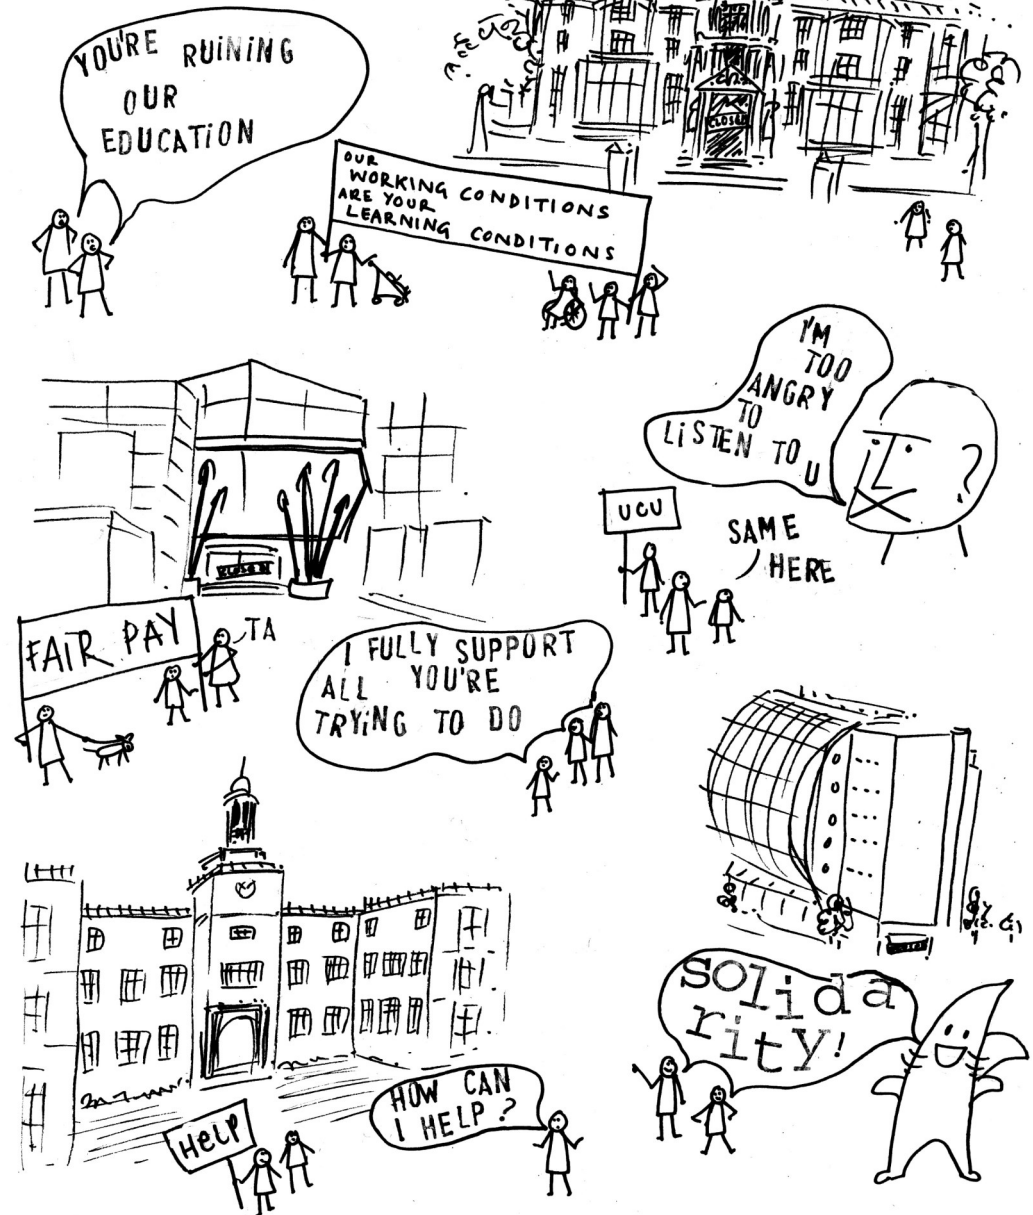 YOU'RE RUINING
OUR
EDUCATION
CLOSED
OUR
WORKING CONDITIONS
ARE YOUR
LEARNING CONDITIONS
I'M
TOO
ANGRY
TO
LISTEN TO U
UCU
SAME
HERE
CLOSED
FAIR PAY
TA
I FULLY SUPPORT
ALL YOU'RE
TRYING TO DO
solida
rity!
HOW CAN
I HELP?
HELP